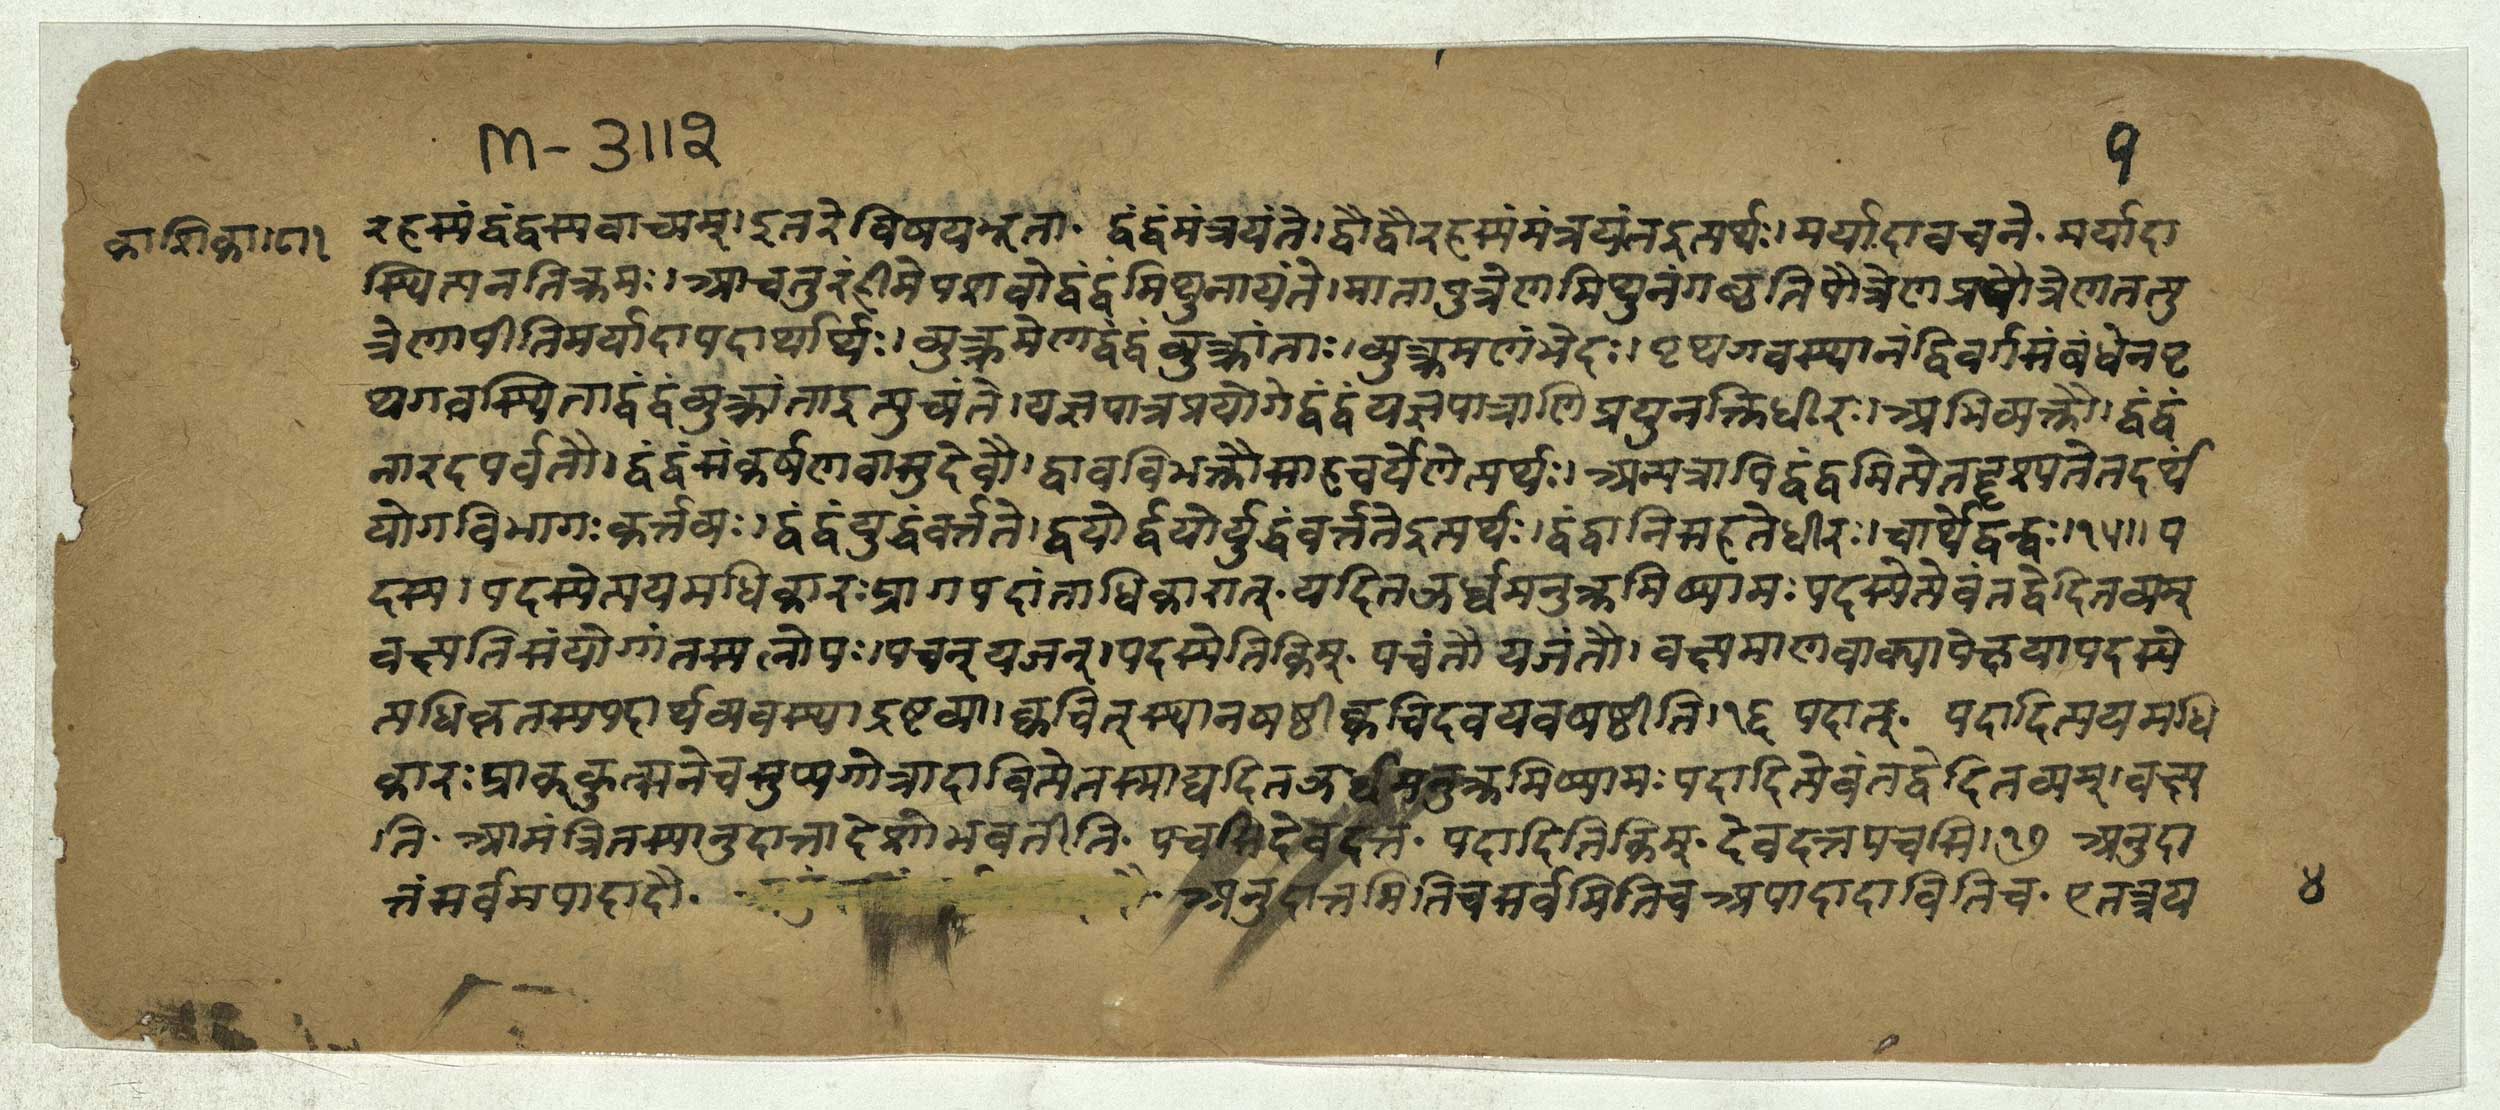 M-3112
१
काशिका।८।१
रहस्यं द्वंद्वस्य वाच्यम्।इतरे विषयभूता. द्वंद्वं मंत्रयंते।द्वौ द्वौ रहस्यं मंत्रयंत इत्यर्थः।मर्यादावचने. मर्यादा
स्थित्यनतिक्रमः।आचतुरं हीमे पशवो द्वंद्वं मिथुनायंते।माता पुत्रेण मिथुनं गच्छति पौत्रेण प्रपौत्रेण तत्पु
त्रेणापीति मर्यादापदार्थार्थः।व्युत्क्रमेण द्वंद्वं व्युत्क्रांताः।व्युत्क्रमणं भेदः।पृथगवस्थानं द्विवर्गसंबंधेन पृ
थगवस्थिता द्वंद्वं व्युत्क्रांता इत्युच्यंते।यज्ञपात्रप्रयोगे द्वंद्वं यज्ञपात्राणि प्रयुनक्ति धीरः।अभिव्यक्तौ।द्वंद्वं
नारदपर्वतौ।द्वंद्वं संकर्षणवासुदेवौ।द्वावविभक्तौ साहचर्येणेत्यर्थः।अन्यत्रापि द्वंद्वमित्येतद्दृश्यते तदर्थं
योगविभागः कर्त्तव्यः।द्वंद्वं युद्धं वर्त्तते।द्वयोर्द्वयोर्युद्धं वर्त्तते इत्यर्थः।द्वंद्वानि सहते धीरः।चार्थे द्वन्द्वः।१५॥प
दस्य।पदस्येत्ययमधिकारः प्रागपदांताधिकारात्.यदित ऊर्ध्वमनुक्रमिष्यामः पदस्येत्येवं तद्वेदितव्यम्
वक्ष्यति संयोगांतस्य लोपः।पचन् यजन्।पदस्येति किम्. पचंतौ यजंतौ।वक्ष्यमाणवाक्यापेक्षया पदस्ये
त्यधिकृतस्य पदार्थव्यवस्था द्रष्टव्या।क्वचित् स्थानषष्ठी क्वचिदवयवषष्ठीति।१६ पदात्. पदादित्ययमधि
कारः प्राक् कुत्सने च सुप्यगोत्रादावित्येतस्माद्यदित ऊर्ध्वमनुक्रमिष्यामः पदादित्येवं तद्वेदितव्यम्।वक्ष्य
ति. आमंत्रितस्यानुदात्तादेशो भवतीति. पचसि देवदत्त. पदादिति किम्. देवदत्त पचसि।१७ अनुदा
त्तं सर्वमपादादौ. अनुदात्तमिति च सर्वमिति च अपादादाविति च. एतत्त्रय
४